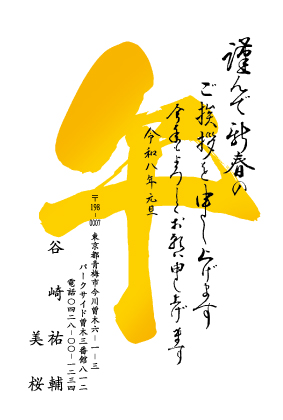 午
謹んで新春の
ご挨拶を申し上げます
今年もよろしくお願い申し上げます
令和八年元旦
〒198-0007
東京都青梅市今川曽木六-一-三
パークサイド曽木三番館八一二
電話〇四二八-〇〇-一二三四
谷崎祐輔
美桜